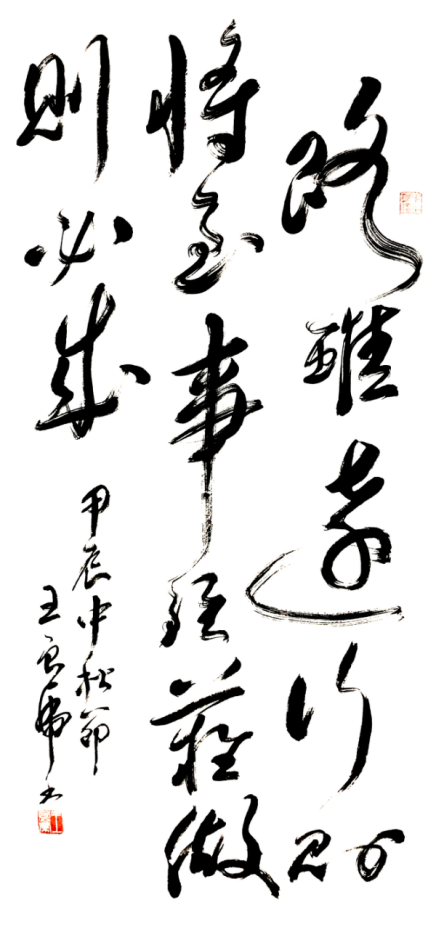 路雖遠行則
將至事雖難做
則必成
甲辰中秋節
王良虎书